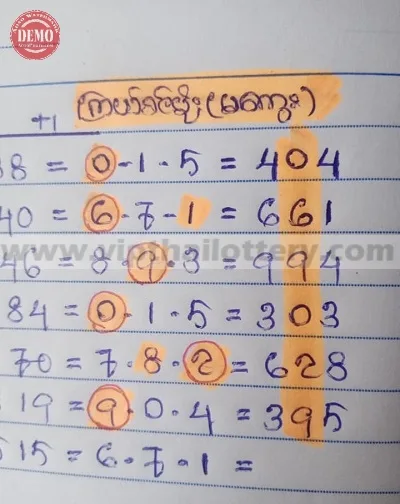 DEMO
ကြယ်စင်မိုး(မကွေး)
+1
38 = 0-1-5 = 404
40 = 6-7-1 = 661
46 = 8.9.3 = 994
84 = 0-1-5 = 303
70 = 7.8.2 = 628
19 = 9.0.4 = 395
515 = 6-7-1 =
www.vipthailottery.com